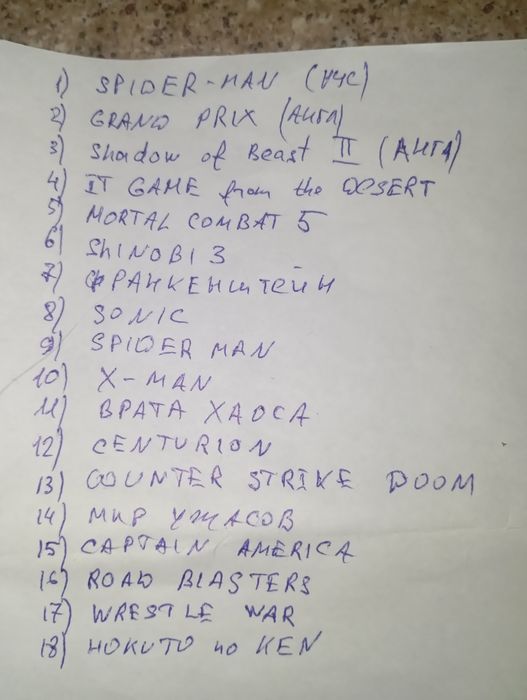 1) SPIDER-MAN (ЧЧС)
2) GRAND PRIX (АНГЛ)
3) Shadow of Beast II (АНГЛ)
4) IT GAME from the DESERT
5) MORTAL COMBAT 5
6) ShINOBI 3
7) ФРАНКЕНШТЕЙН
8) SONIC
9) SPIDER MAN
10) X-MAN
11) ВРАТА ХАОСА
12) CENTURION
13) COUNTER STRIKE DOOM
14) МИР УЖАСОВ
15) CAPTAIN AMERICA
16) ROAD BLASTERS
17) WRESTLE WAR
18) HOKUTO no KEN